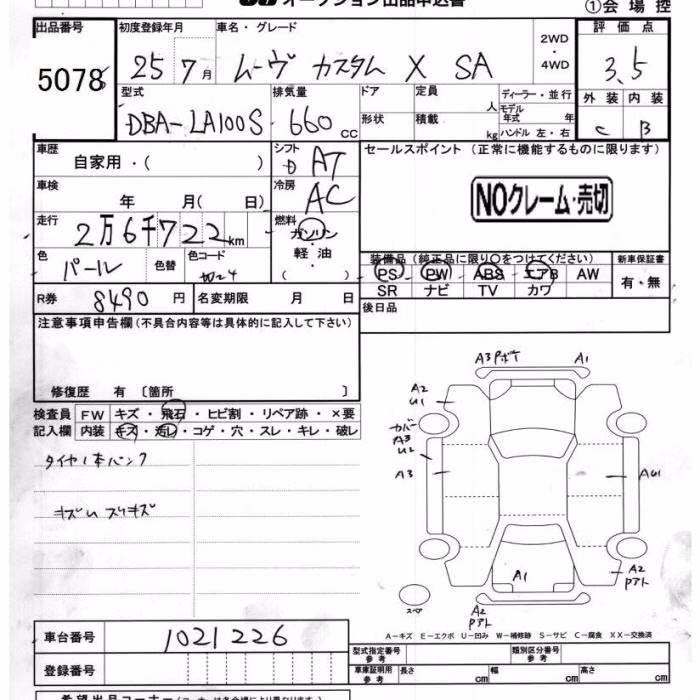 オークション出品申込書
①会場控
出品番号 初度登録年月 車名・グレード 評価点
5078 25 7月 ムーヴ カスタム X SA 2WD・4WD 3.5
型式 排気量 ドア 定員 人 ディーラー・並行 外装 内装
DBA-LA100S 660 cc 形状 積載 kg モデル年式 年 ハンドル 左・右 C B
車歴 シフト セールスポイント (正常に機能するものに限ります)
自家用・( ) D AT
車検 年 月( 日) 冷房 AC NOクレーム・売切
走行 2万6千722km 燃料 ガソリン・軽油・( )
色 パール 色替 色コード W24
装備品(純正品に限り〇をつけてください) 新車保証書
PS PW ABS エアB AW 有・無
SR ナビ TV カワ
R券 8490円 名変期限 月 日 後日品
注意事項申告欄(不具合内容等は具体的に記入して下さい)
修復歴 有〔箇所 〕
検査員 FW キズ・飛石・ヒビ割・リペア跡・×要
記入欄 内装 キズ・汚レ・コゲ・穴・スレ・キレ・破レ
タイヤ1本パンク
キズU スリキズ
A3Pボケ A1
A2
U1
カバー
A3
U2
A3
AU1
A1
A2
Pアト
スペ
A2
Pアト
A-キズ E-エクボ U-凹み W-補修跡 S-サビ C-腐食 XX-交換済
車台番号 1021226
登録番号
型式指定番号 参考 類別区分番号 参考
車庫証明用 参考 長さ cm 幅 cm 高さ cm
希望出品コーナー